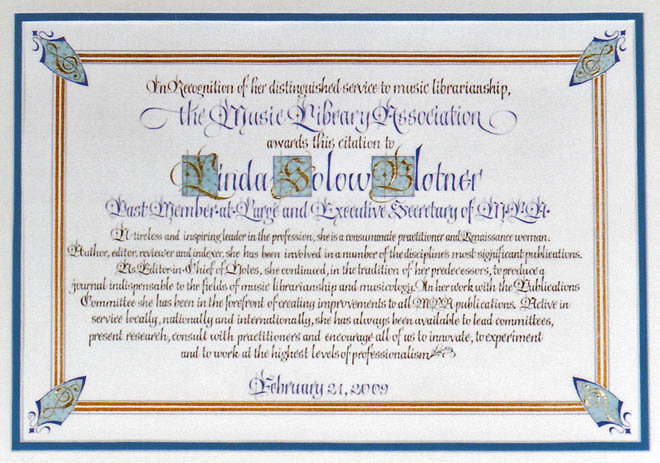 In Recognition of her distinguished service to music librarianship,
the Music Library Association
awards this citation to
Linda Solow Blotner
Past Member-at-Large and Executive Secretary of MLA.
A tireless and inspiring leader in the profession, she is a consummate practitioner and Renaissance woman.
Author, editor, reviewer and indexer, she has been involved in a number of the discipline's most significant publications.
As Editor-in-Chief of Notes, she continued, in the tradition of her predecessors, to produce a
journal indispensable to the fields of music librarianship and musicology. In her work with the Publications
Committee she has been in the forefront of creating improvements to all MLA publications. Active in
service locally, nationally and internationally, she has always been available to lead committees,
present research, consult with practitioners and encourage all of us to innovate, to experiment
and to work at the highest levels of professionalism
February 21, 2009